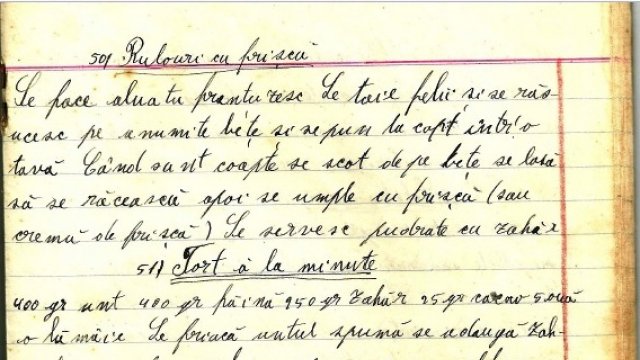 50) Rulouri cu frișcă
Se face aluatu franțuzesc Se taie felii și se răs
ucesc pe anumite bețe și se pun la copt într'o
tavă Când sunt coapte se scot de pe bețe se lasă
să se răcească apoi se umple cu frișcă (sau
cremă de frișcă) Se servesc pudrate cu zahăr
51) Tort à la minute
400 gr unt 400 gr făină 250 gr zahăr 25 gr cacao 5 ouă
o lămâie Se freacă untul spumă se adaugă zah-